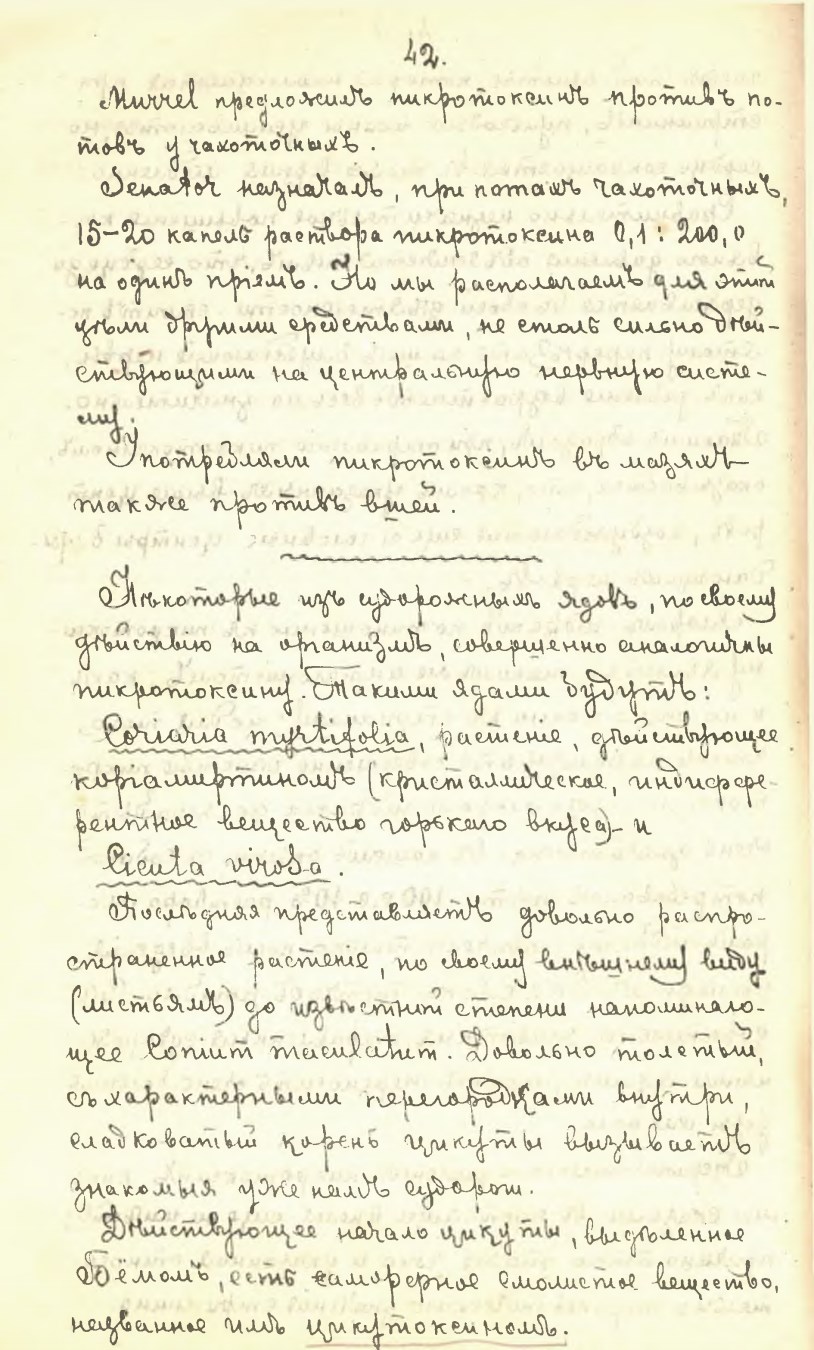 42.
Murrel предложилъ пикротоксинъ противъ по-
товъ у чахоточныхъ.
Senator назначалъ, при потахъ чахоточныхъ,
15-20 капель раствора пикротоксина 0,1 : 200,0
на одинъ пріемъ. Но мы располагаемъ для этой
цѣли другими средствами, не столь сильно дѣй-
ствующими на центральную нервную систе-
му.
Употребляли пикротоксинъ въ мазяхъ
также противъ вшей.
Нѣкоторые изъ судорожныхъ ядовъ, по своему
дѣйствію на организмъ, совершенно аналогичны
пикротоксину. Такими ядами будутъ:
Coriaria myrtifolia, растеніе, дѣйствующее
коріамиртиномъ (кристаллическое, индиффе-
рентное вещество горькаго вкуса) - и
Cicuta virosa.
Послѣдняя представляетъ довольно распро-
страненное растеніе, по своему внѣшнему виду
(листьямъ) до извѣстной степени напоминаю-
щее Conium maculatum. Довольно толстый,
съ характерными перегородками внутри,
сладковатый корень цикуты вызываетъ
знакомыя уже намъ судороги.
Дѣйствующее начало цикуты, выдѣленное
Бёмомъ, есть аморфное смолистое вещество,
названное имъ цикутоксиномъ.